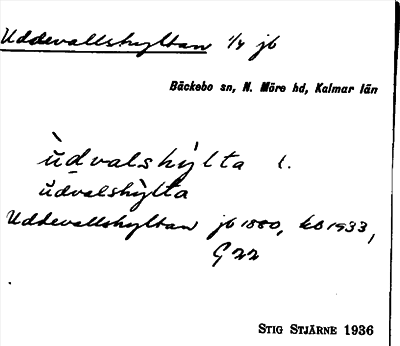 Uddevallshyltan 1/4 jb
Bäckebo sn, N. Möre hd, Kalmar län
ùdvalshỳlta l.
ŭdvalshỳlta
Uddevallshyltan jb 1880, kb 1933,
G 22
STIG STJÄRNE 1936